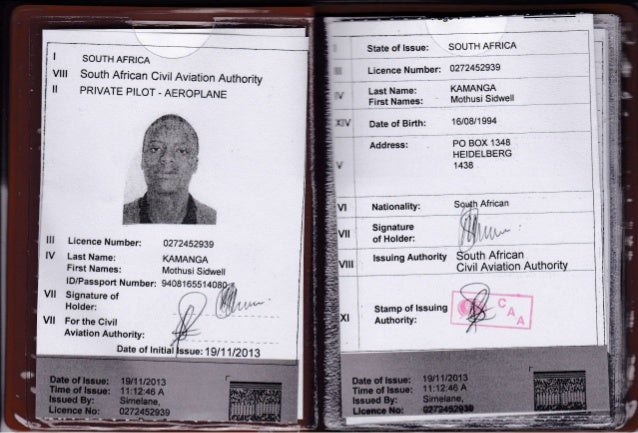 I SOUTH AFRICA
VIII South African Civil Aviation Authority
II PRIVATE PILOT - AEROPLANE
III Licence Number: 0272452939
IV Last Name: KAMANGA
First Names: Mothusi Sidwell
ID/Passport Number: 9408165514080
VII Signature of
Holder:
VII For the Civil
Aviation Authority:
Date of Initial Issue: 19/11/2013
Date of Issue: 19/11/2013
Time of Issue: 11:12:46 A
Issued By: Simelane,
Licence No: 0272452939
I State of Issue: SOUTH AFRICA
III Licence Number: 0272452939
IV Last Name: KAMANGA
First Names: Mothusi Sidwell
XIV Date of Birth: 16/08/1994
Address: PO BOX 1348
HEIDELBERG
V 1438
VI Nationality: South African
VII Signature
of Holder:
VIII Issuing Authority South African
Civil Aviation Authority
XI Stamp of Issuing
Authority:
CAA
Date of Issue: 19/11/2013
Time of Issue: 11:12:46 A
Issued By: Simelane,
Licence No: 0272452939